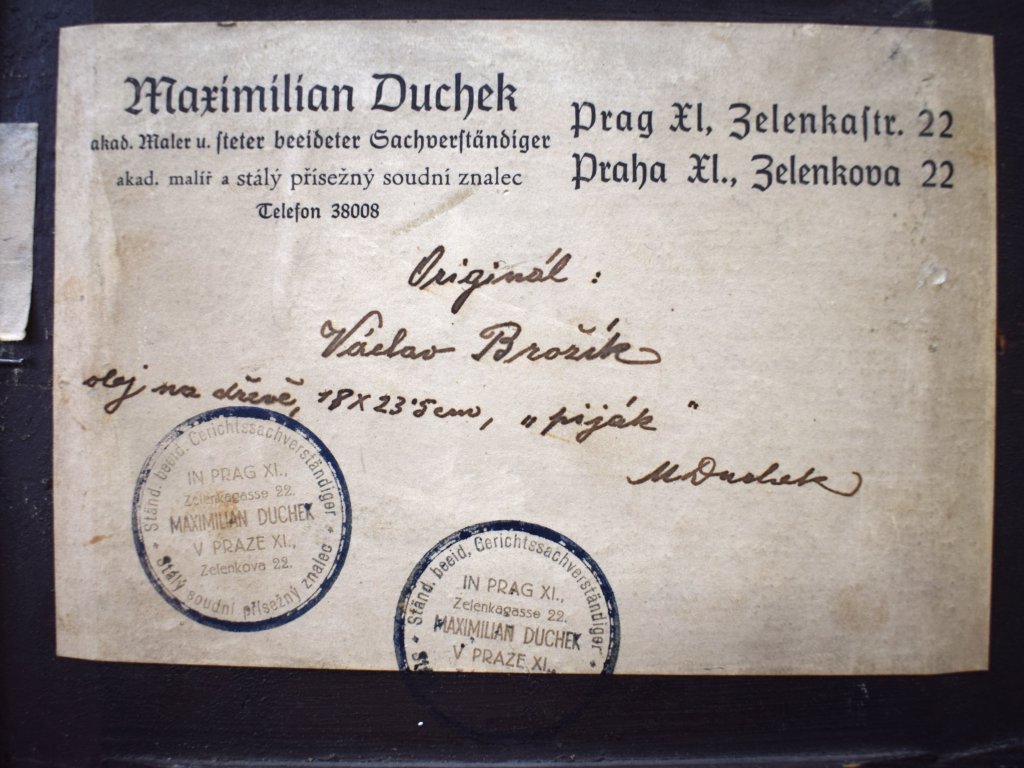 Maximilian Duchek
akad. Maler u. steter beeideter Sachverständiger
akad. malíř a stálý přísežný soudní znalec
Telefon 38008
Prag XI, Zelenkastr. 22
Praha XI., Zelenkova 22
Originál :
Václav Brožík
olej na dřevě, 18 x 23·5 cm, „pijάk"
M Duchek
Ständ. beeid. Gerichtssachverständiger
IN PRAG XI.,
Zelenkagasse 22.
MAXIMILIAN DUCHEK
V PRAZE XI.,
Zelenkova 22.
Stálý soudní přísežný znalec
Ständ. beeid. Gerichtssachverständiger
IN PRAG XI.,
Zelenkagasse 22.
MAXIMILIAN DUCHEK
V PRAZE XI.,